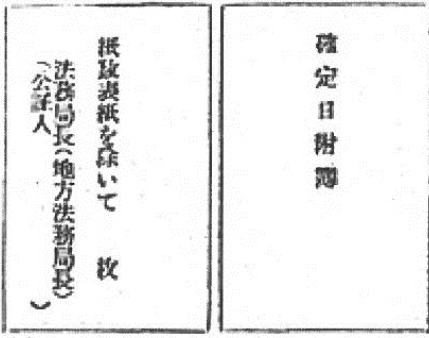 確定日附簿
紙数表紙を除いて　　枚
法務局長(地方法務局長)
(公証人　　　　　　)